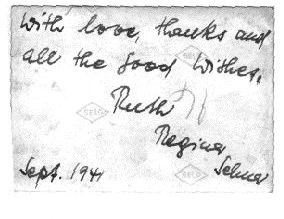 With love, thanks and
all the good wishes.
Ruth
Regina
Selma
Sept. 1941
SELO
SELO
SELO